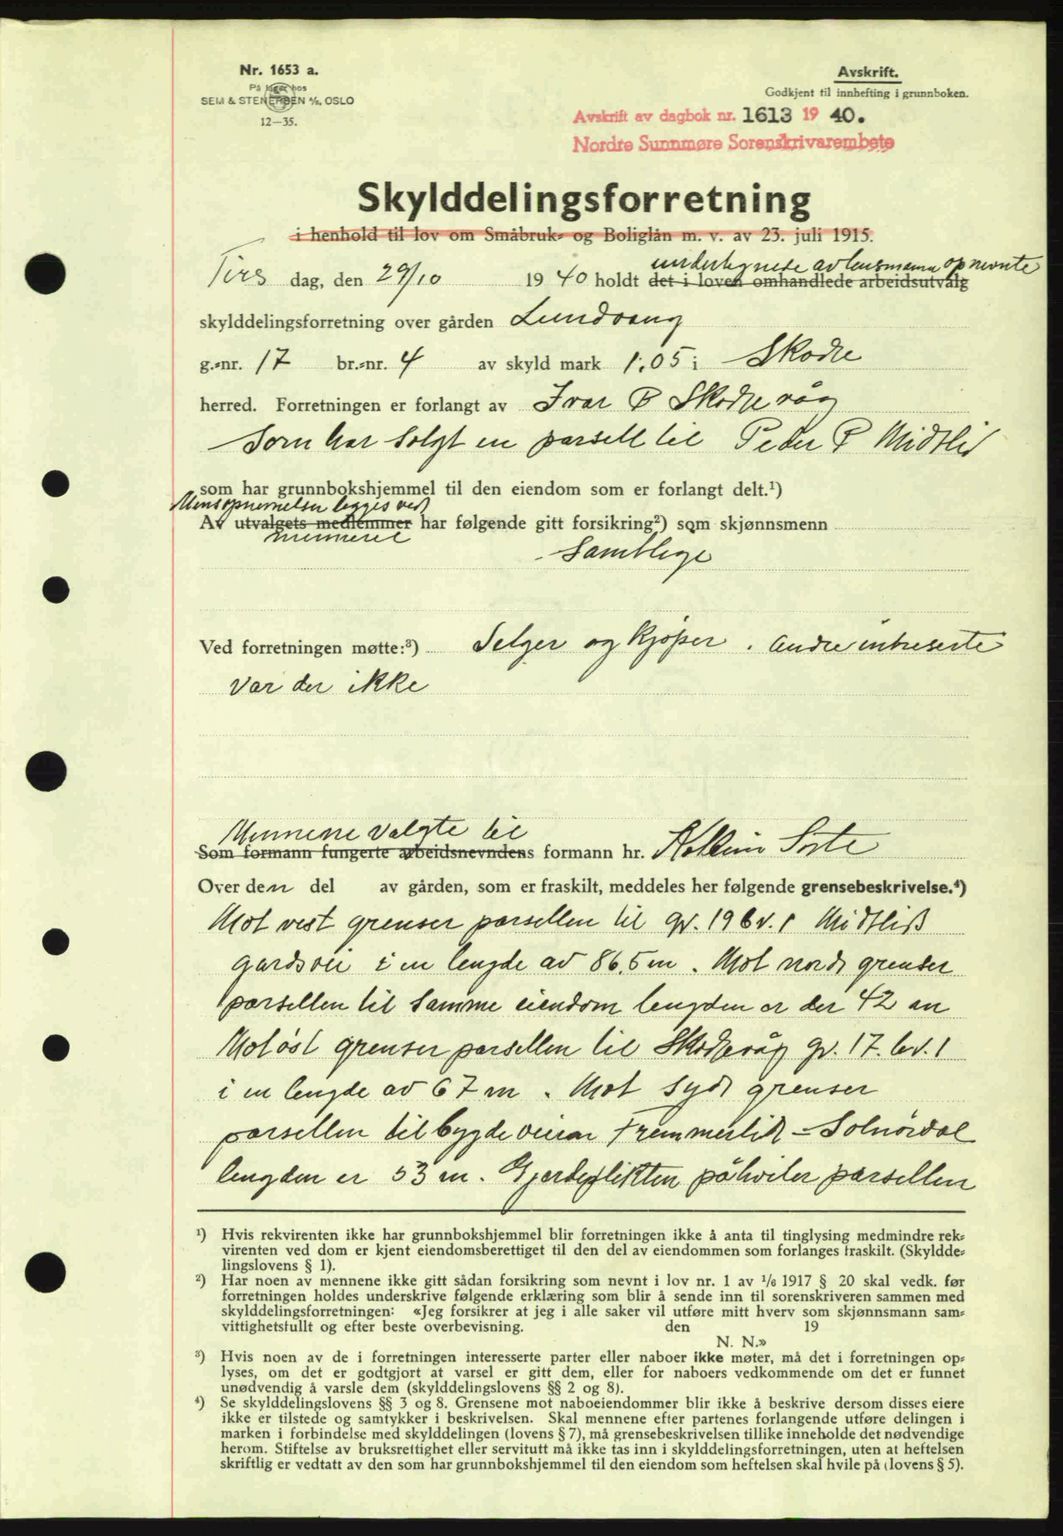 Nr. 1653 a.
På lager hos
SEM & STENERSEN A/S, OSLO
12—35.
Avskrift.
Godkjent til innhefting i grunnboken.
Avskrift av dagbok nr. 1613 19 40.
Nordre Sunnmøre Sorenskrivarembete
Skylddelingsforretning
i henhold til lov om Småbruk- og Boliglån m. v. av 23. juli 1915.
undertegnede av lensmann opnevnte
Tirs dag, den 29/10 19 40 holdt det i loven omhandlede arbeidsutvalg
skylddelingsforretning over gården Lundvang
g.-nr. 17 br.-nr. 4 av skyld mark 1.05 i Skodje
herred. Forretningen er forlangt av Ivar P Skodjevåg
Som har Solgt en parsell til Peder P Midtlid
som har grunnbokshjemmel til den eiendom som er forlangt delt.¹)
Mensopnevnelsen legges ved
Av utvalgets medlemmer har følgende gitt forsikring²) som skjønnsmenn
mennene
Samtlige
Ved forretningen møtte:³) Selger og Kjøper. Andre intreserte
var der ikke
Mennene valgte til
Som formann fungerte arbeidsnevndens formann hr. Kolbein Sorte
Over den del av gården, som er fraskilt, meddeles her følgende grensebeskrivelse.⁴)
Mot vest grenser parsellen til gr. 19 bv. 1 Midtlid
gardsvei i en lengde av 86,5 m. Mot nord grenser
parsellen til Samme eiendom lengden er der 42 m
Mot øst grenser parsellen til Skodjevåg gr. 17. bv. 1
i en lengde av 67 m. Mot syd grenser
parsellen til bygdeveien Fremmerlid – Solnørdal
lengden er 53 m. Gjerdeplikten påhviler parsellen
¹) Hvis rekvirenten ikke har grunnbokshjemmel blir forretningen ikke å anta til tinglysing medmindre rek-
virenten ved dom er kjent eiendomsberettiget til den del av eiendommen som forlanges fraskilt. (Skyldde-
lingslovens § 1).
²) Har noen av mennene ikke gitt sådan forsikring som nevnt i lov nr. 1 av ¹/₆ 1917 § 20 skal vedk. før
forretningen holdes underskrive følgende erklæring som blir å sende inn til sorenskriveren sammen med
skylddelingsforretningen: «Jeg forsikrer at jeg i alle saker vil utføre mitt hverv som skjønnsmann sam-
vittighetsfullt og efter beste overbevisning. den 19
N. N.»
³) Hvis noen av de i forretningen interesserte parter eller naboer ikke møter, må det i forretningen op-
lyses, om det er godtgjort at varsel er gitt dem, eller for naboers vedkommende om det er funnet
unødvendig å varsle dem (skylddelingslovens §§ 2 og 8).
⁴) Se skylddelingslovens §§ 3 og 8. Grensene mot naboeiendommer blir ikke å beskrive dersom disses eiere
ikke er tilstede og samtykker i beskrivelsen. Skal mennene efter partenes forlangende utføre delingen i
marken i forbindelse med skylddelingen (lovens § 7), må grensebeskrivelsen tillike inneholde det nødvendige
herom. Stiftelse av bruksrettighet eller servitutt må ikke tas inn i skylddelingsforretningen, uten at heftelsen
skriftlig er vedtatt av den som har grunnbokshjemmel til den eiendom som heftelsen skal hvile på (lovens § 5).